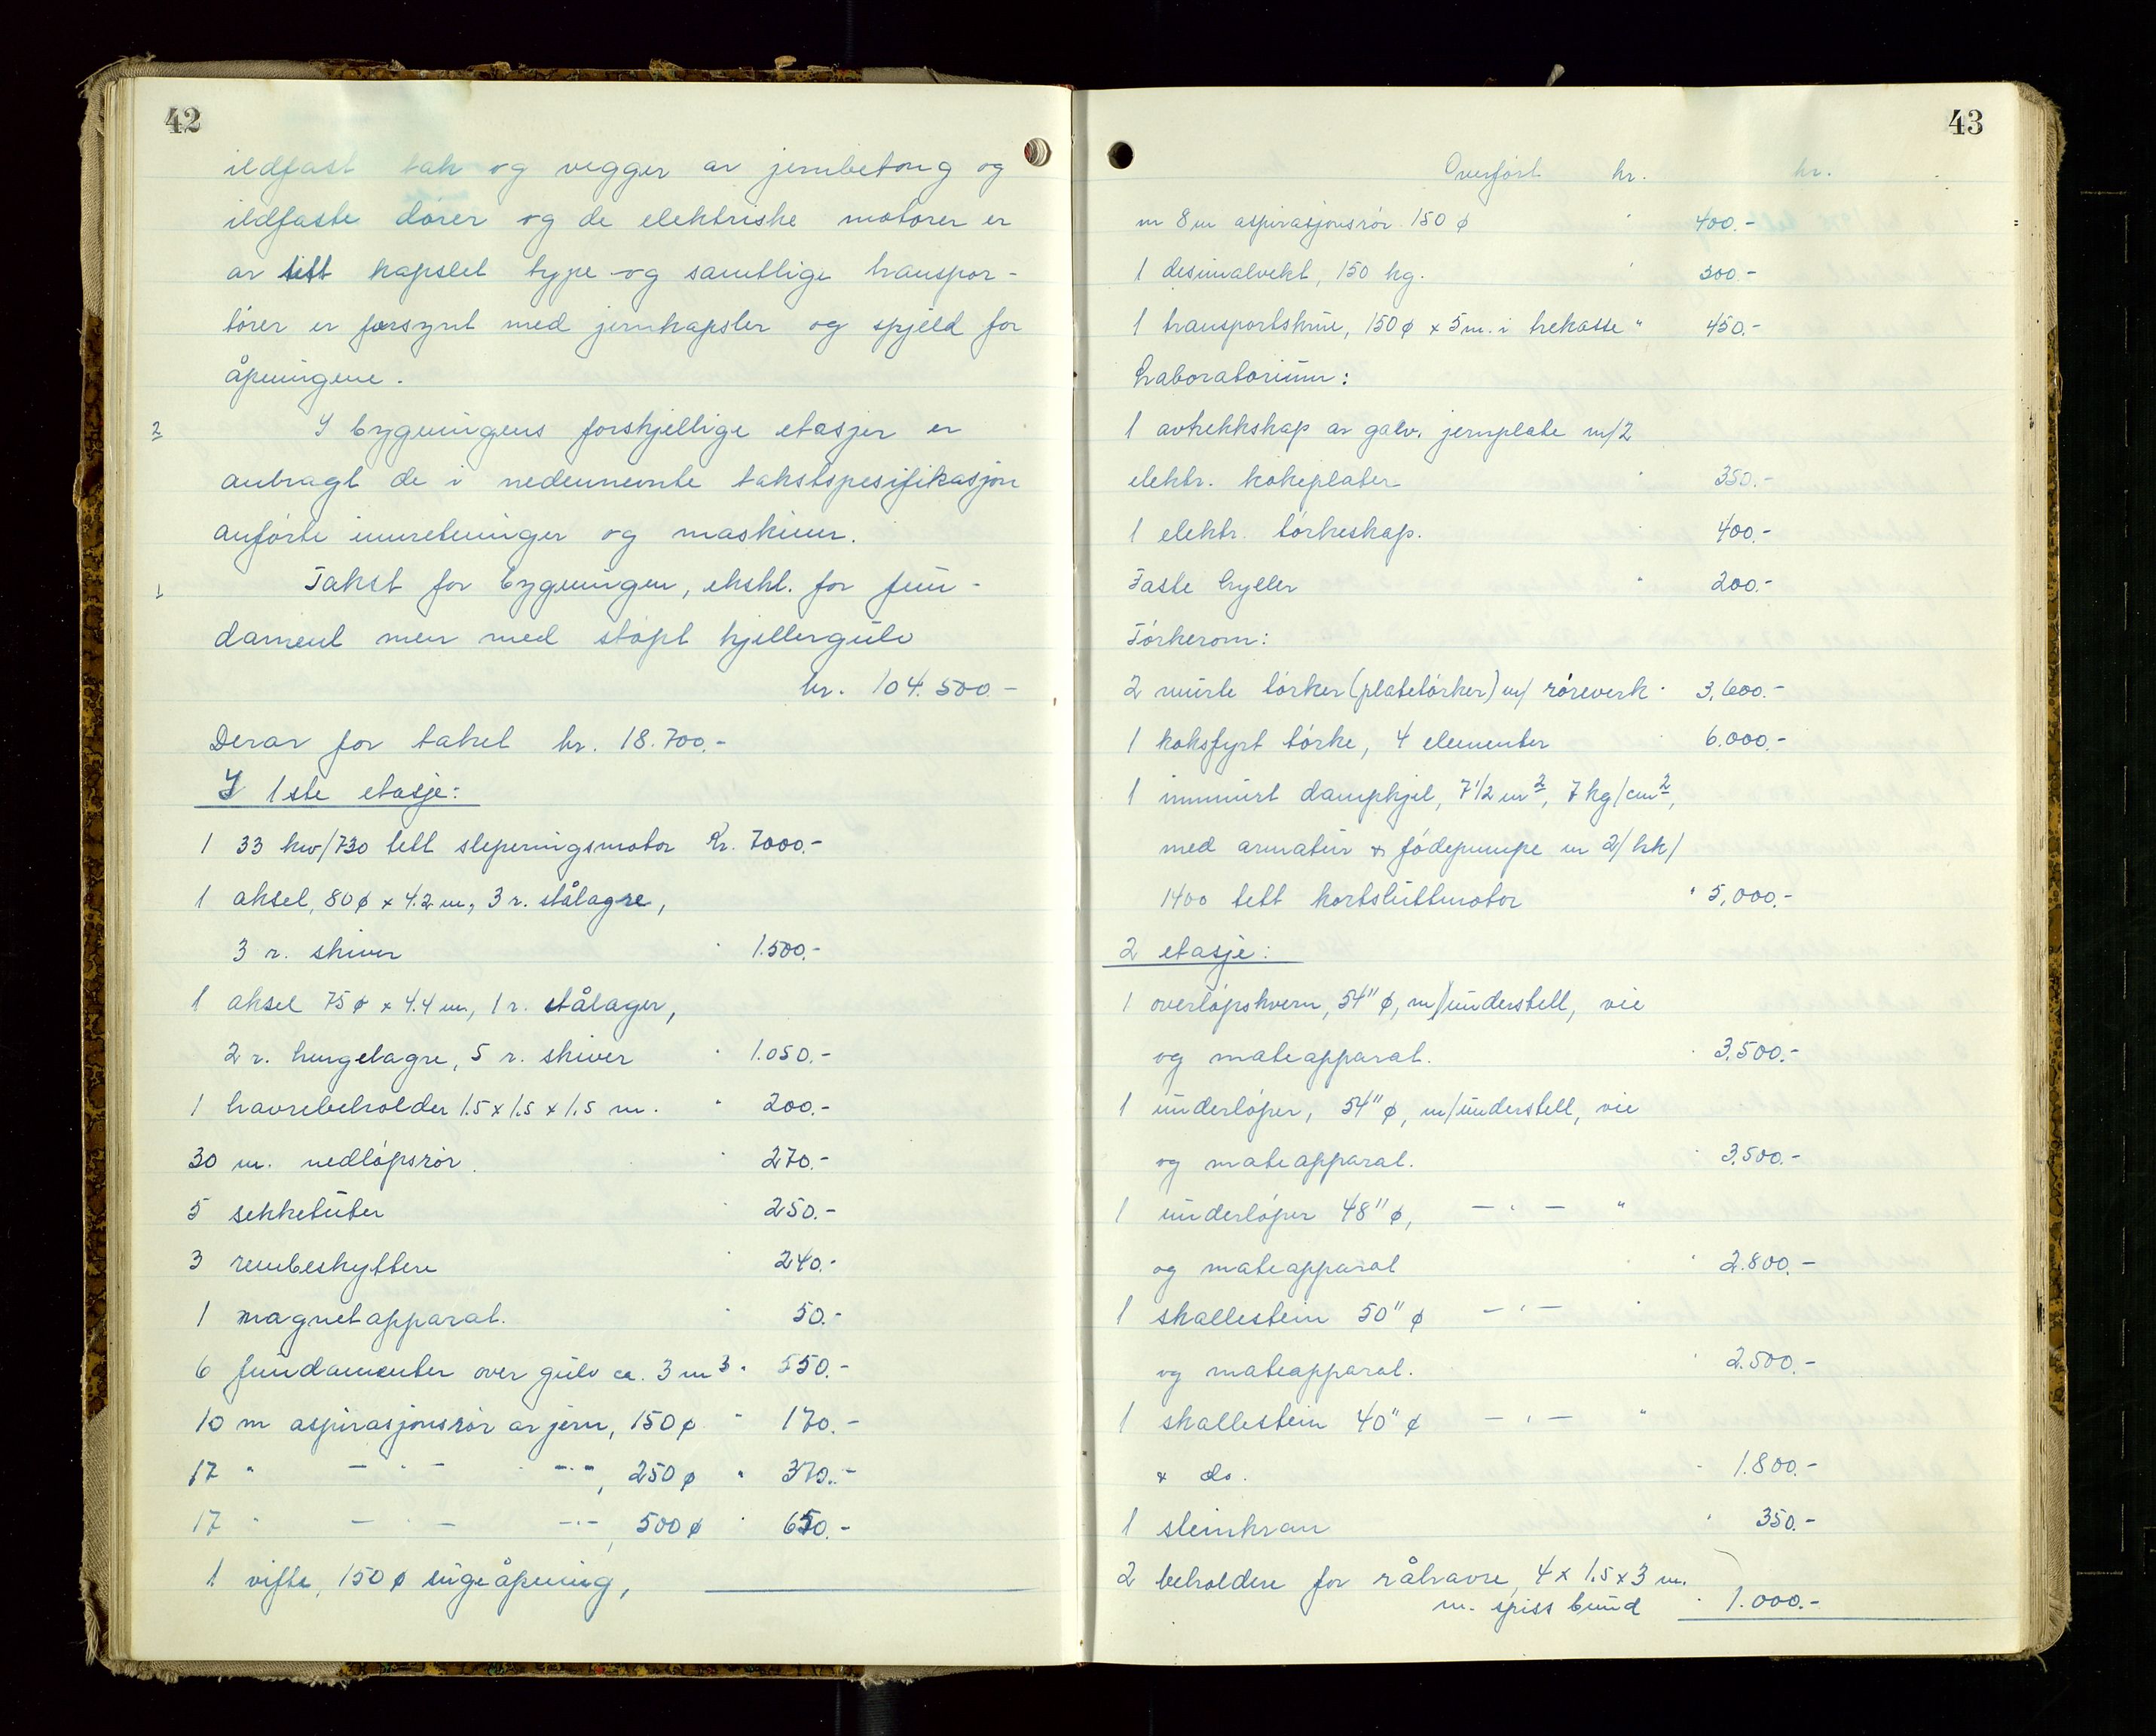 42
ildfast tak og vegger av jernbetong og
ildfaste dører og de elektriske motorer er
av tett kapslet type og samtlige transpor-
tører er forsynt med jernkapsler og spjeld for
åpningene.
2 I bygningens forskjellige etasjer er
anbragt de i nedennevnte takstspesifikasjon
anførte innretninger og maskiner.
1 Takst for bygningen, ekskl. for fun-
dament men med støpt kjellergulv
kr. 104.500.-
Derav for taket kr. 18.700.-
I 1ste etasje:
1 33 kw/730 tett sleperingsmotor Kr. 7000.-
1 aksel, 80 ø x 4.2 m, 3 r. stålagre,
3 r. skiver " 1.500.-
1 aksel 75 ø x 4.4 m, 1 r. stålager,
2 r. hengelagre, 5 r. skiver " 1.050.-
1 havrebeholder 1.5 x 1.5 x 1.5 m. " 200.-
30 m. nedløpsrør. " 270.-
5 sekketuter " 250.-
3 rembeskyttere " 240.-
1 magnetapparat. " 50.-
6 fundamenter over gulv ca. 3 m3 " 550.-
10 m aspirasjonsrør av jern, 150 ø " 170.-
17 " - " - -"-, 250 ø " 370.-
17 " - " - -"-, 500 ø " 650.-
1 vifte, 150 ø sugeåpning,
43
Overført kr. kr.
m 8 m aspirasjonsrør 150 ø " 400.-
1 desimalvekt, 150 kg. " 300.-
1 transportskrue, 150 ø x 5 m. i trekasse " 450.-
Laboratorium:
1 avtrekkskap av galv. jernplate m/2
elektr. kokeplater " 350.-
1 elektr. tørkeskap. " 400.-
Faste hyller " 200.-
Tørkerom:
2 murte tørker (platetørker) m/ rørverk " 3.600.-
1 koksfyrt tørke, 4 elementer " 6.000.-
1 innmurt dampkjel, 7 1/2 m2, 7 kg/cm2,
med armatur & fødepumpe m 2/hk/
1400 tett kortsluttmotor " 5,000.-
2 etasje:
1 overløpskvern, 54" ø, m/understell, vie
og mateapparat. " 3.500.-
1 underløper, 54" ø, m/understell, vie
og mateapparat. " 3.500.-
1 underløper 48" ø, - " - "
og mateapparat " 2.800.-
1 skallestein 50" ø - " - "
og mateapparat. " 2.500.-
1 skallestein 40" ø - " - "
& do. " 1.800.-
1 steinkran " 350.-
2 beholdere for råhavre, 4 x 1.5 x 3 m.
m. spiss bund " 1.000.-